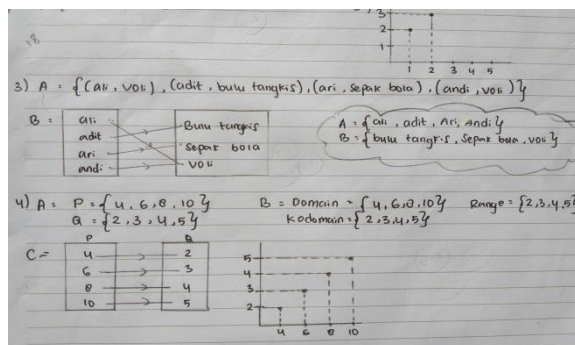 18
3
2
1
1 2 3 4 5
3) A = {(ali, voli), (adit, bulu tangkis), (ari, sepak bola), (andi, voli)}
B =
ali
adit
ari
andi
Bulu tangkis
Sepak bola
voli
A = {ali, adit, Ari, Andi}
B = {bulu tangkis, Sepak bola, voli}
4) A = P = {4, 6, 8, 10}
Q = {2, 3, 4, 5}
B = Domain = {4, 6, 8, 10} Range = {2, 3, 4, 5}
Kodomain = {2, 3, 4, 5}
C =
P Q
4 2
6 3
8 4
10 5
5
4
3
2
4 6 8 10